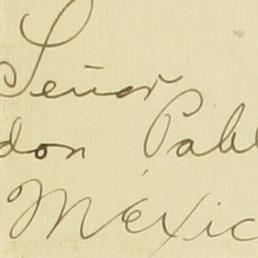 Señor
don Pabl
Méxic